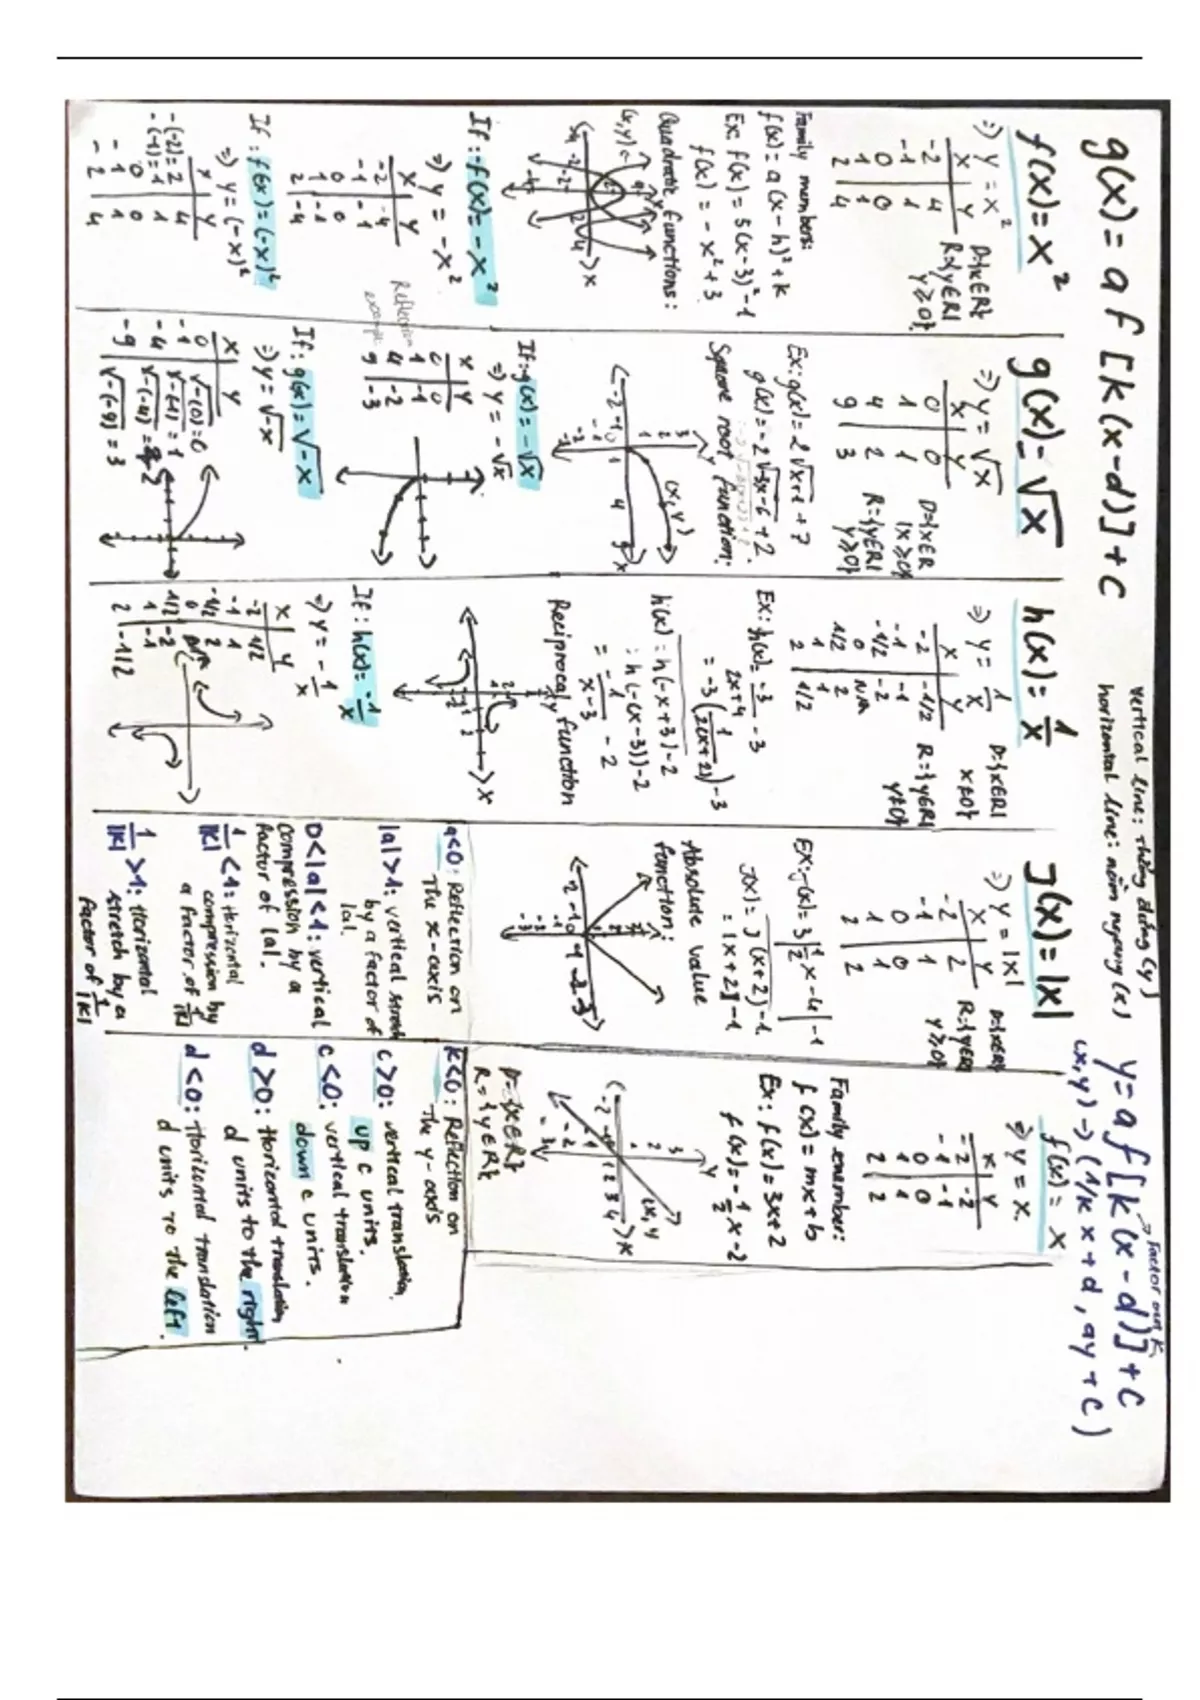 g(x) = a f [k(x-d)] + c
vertical line: thẳng đứng (y)
horizontal line: nằm ngang (x)
y = a f [k(x-d)] + c
Factor out k
(x,y) → (1/k x + d, ay + c)
f(x) = x²
⇒ y = x²
x | y
-2 | 4
-1 | 1
0 | 0
1 | 1
2 | 4
D={x∈R}
R={y∈R|
y≥0}
Family members:
f(x) = a(x-h)² + k
Ex: f(x) = 5(x-3)² - 1
f(x) = -x² + 3
Quadratic functions:
(x,y)
If: -f(x) = -x²
⇒ y = -x²
x | y
-2 | -4
-1 | -1
0 | 0
1 | -1
2 | -4
Reflection
example
If: f(-x) = (-x)²
⇒ y = (-x)²
x | y
-(-2)=2 | 4
-(-1)=1 | 1
0 | 0
-1 | 1
-2 | 4
g(x) = √x
⇒ y = √x
x | y
0 | 0
1 | 1
4 | 2
9 | 3
D={x∈R
|x≥0}
R={y∈R|
y≥0}
Ex: g(x) = 2√x+1 + 7
g(x) = -2√-3x-6 + 2
Square root function:
(x,y)
If: g(x) = -√x
⇒ y = -√x
x | y
0 | 0
1 | -1
4 | -2
9 | -3
If: g(x) = √-x
⇒ y = √-x
x | y
0 | √-(0) = 0
-1 | √-(-1) = 1
-4 | √-(-4) = 2
-9 | √-(-9) = 3
h(x) = 1/x
⇒ y = 1/x
x | y
-2 | -1/2
-1 | -1
-1/2 | -2
0 | N/A
1/2 | 2
1 | 1
2 | 1/2
D={x∈R|
x≠0}
R={y∈R|
y≠0}
Ex: h(x) = -3/2x+4 - 3
= -3(1/2(x+2)) - 3
h(x) = h(-x+3) - 2
= h(-(x-3)) - 2
= -1/x-3 - 2
Reciprocal function
If: h(x) = -1/x
⇒ y = -1/x
x | y
-2 | 1/2
-1 | 1
-1/2 | 2
0
1/2 | -2
1 | -1
2 | -1/2
J(x) = |x|
⇒ y = |x|
x | y
-2 | 2
-1 | 1
0 | 0
1 | 1
2 | 2
D={x∈R}
R={y∈R|
y≥0}
EX: J(x) = 3|1/2 x - 4| - 1
J(x) = J(x+2) - 1
= |x+2| - 1
Absolute value
function:
f(x) = x
⇒ y = x
x | y
-2 | -2
-1 | -1
0 | 0
1 | 1
2 | 2
Family member:
f(x) = mx + b
Ex: f(x) = 3x+2
f(x) = -1/2 x - 2
(x,y)
D={x∈R}
R={y∈R}
a<0: Reflection on
The x-axis
|a|>1: vertical stretch
by a factor of
|a|.
0<|a|<1: vertical
compression by a
factor of |a|.
1/|k| <1: Horizontal
compression by
a factor of 1/|k|
1/|k| >1: Horizontal
stretch by a
factor of 1/|k|
k<0: Reflection on
The y-axis
c>0: vertical translation,
up c units.
c<0: vertical translation
down c units.
d>0: Horizontal translation
d units to the right.
d<0: Horizontal translation
d units to the left.